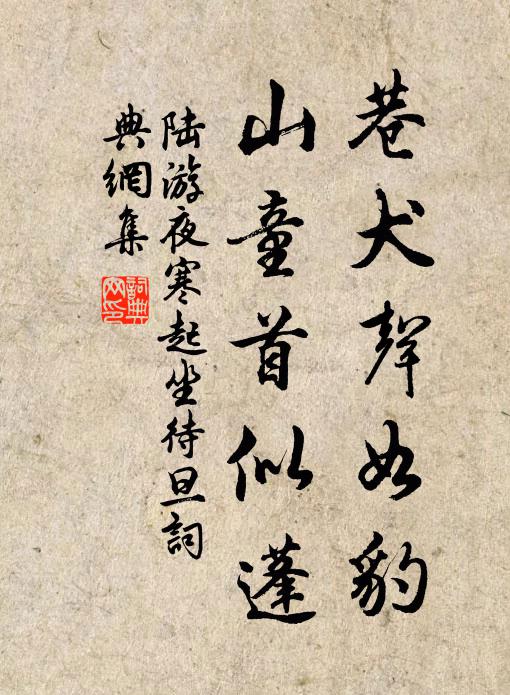 巷犬聲如豹
山童首似蓬
陸游夜寒起坐待旦詞
典網集
詞典
网印